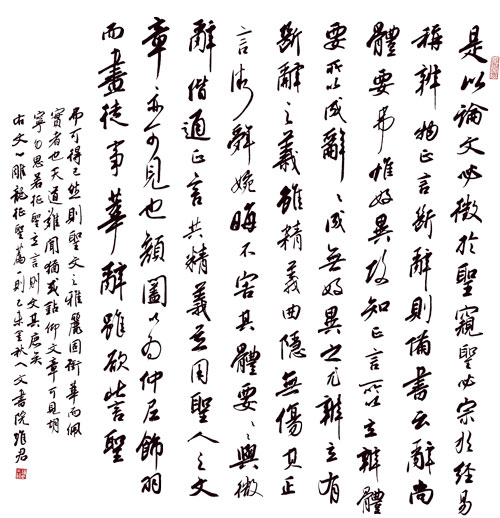 是以論文必徵於聖窺聖必宗於經易
稱辨物正言斷辭則備書云辭尚
體要弗惟好異故知正言所以立辨體
要所以成辭〻成無好異之尤辨立有
斷辭之義雖精義曲隱無傷其正
言微辭婉晦不害其體要〻〻與微
辭偕通正言共精義並用聖人之文
章亦可見也顏闔以為仲尼飾羽
而畫徒事華辭雖欲訾聖
弗可得已然則聖文之雅麗固銜華而佩
實者也天道難聞猶或鑽仰文章可見胡
寧勿思若征聖立言則文其庶矣
右文心雕龍征聖篇一則乙未秋人文書院